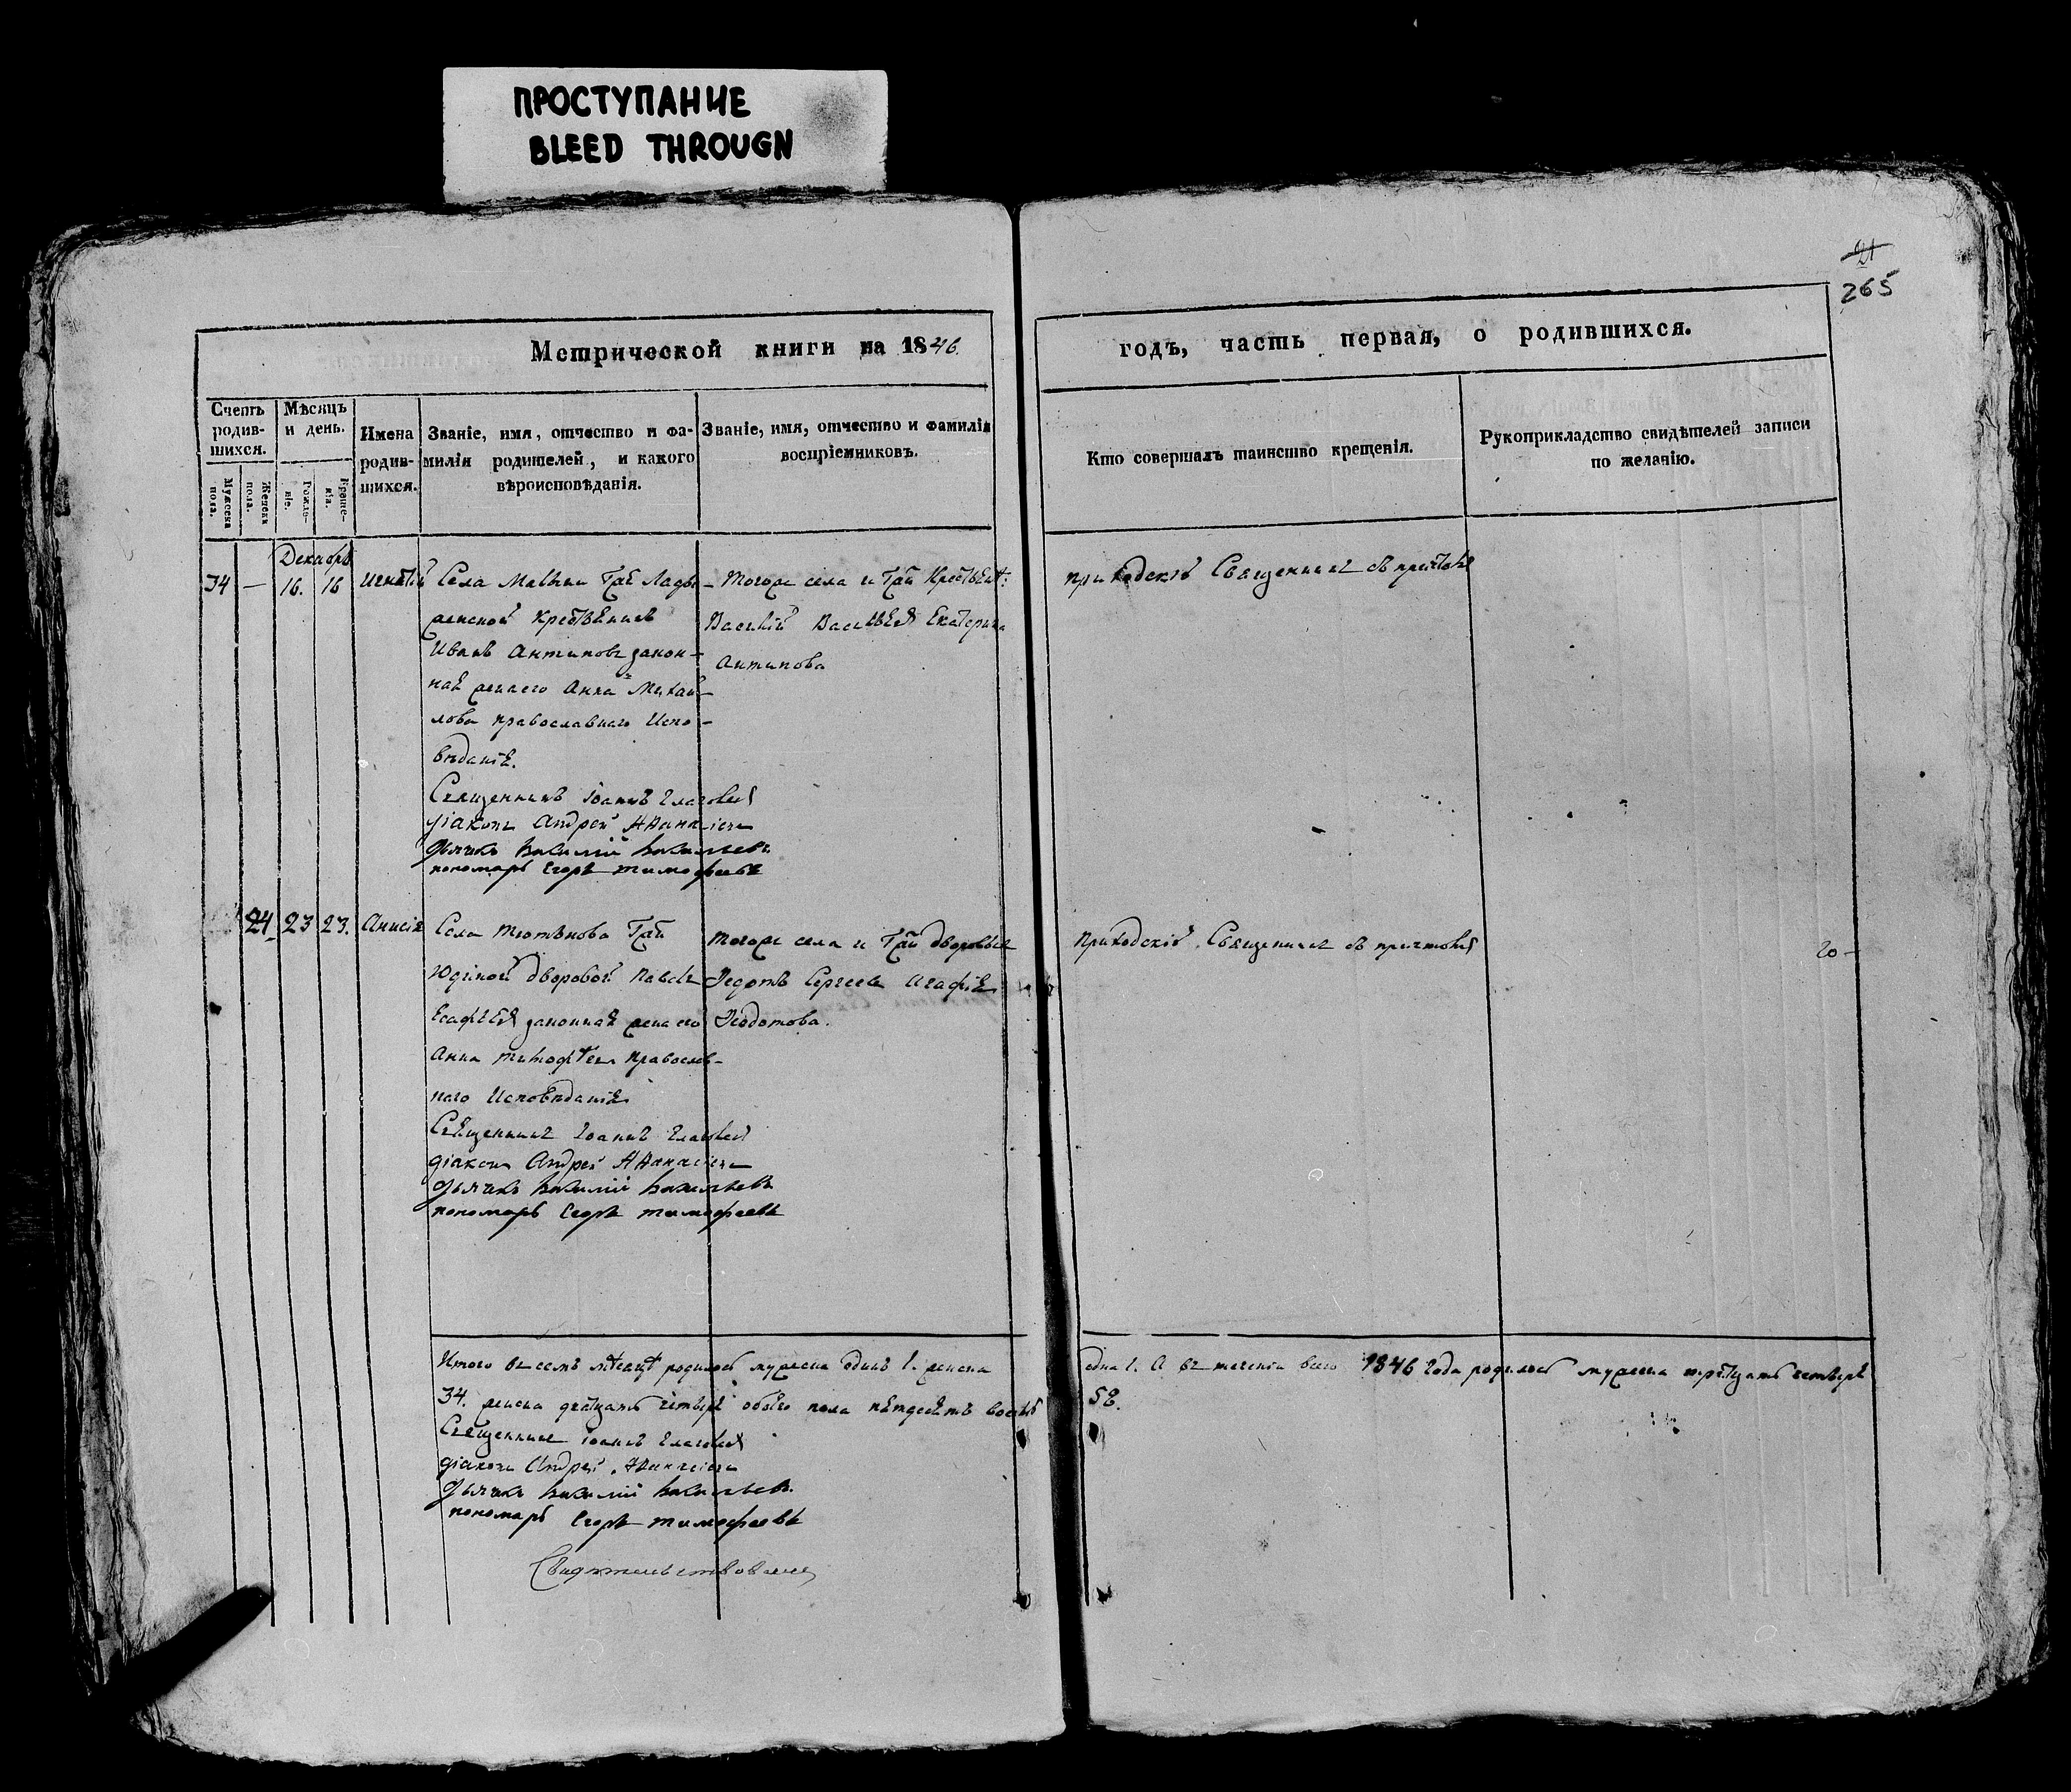 ПРОСТУПАНИЕ
BLEED THROUGN
21
265
Метрической книги на 1846.
годъ, часть первая, о родившихся.
Счетъ родив-шихся.
Мужеска пола.
Женска пола.
Мѣсяцъ и день.
Рожде-нія.
Креще-нія.
Имена родив-шихся.
Званіе, имя, отчество и фа-
милія родителей, и какого
вѣроисповѣданія.
Званіе, имя, отчество и фамилія
воспріемниковъ.
Кто совершалъ таинство крещенія.
Рукоприкладство свидѣтелей записи
по желанію.
Декабрь
34 — 16. 16 Игнатій Села
Крестьянинъ
Иванъ Антиповъ закон-
ная жена его Анна Михай-
лова православнаго Испо-
вѣданія.
Священникъ Іоаннъ
діаконъ Андрей
дьячекъ Василій Васильевъ
пономарь Егоръ Тимофеевъ
тогоже села и Гжи
Василій Васильевъ Екатерина
Антипова
приходскій Священникъ съ причтомъ
24 23 23. Анисія Села Гжи
дворовой
законная жена его
Анна православ-
наго Исповѣданія
Священникъ Іоаннъ
діаконъ Андрей
дьячекъ Василій Васильевъ
пономарь Егоръ Тимофеевъ
тогоже села и Гжи дворовые
Ѳедотъ Сергеевъ Агафія
Ѳеодотова.
приходскій Священникъ съ причтомъ
20 —
Итого въ семъ мѣсяцѣ родилось мужеска одинъ 1. женска
одна 1. А въ теченіи всего 1846 года родилось мужеска тритцать четыре
34. женска дватцать четыре обоего пола пятдесятъ восемь
58.
Священникъ Іоаннъ
діаконъ Андрей
дьячекъ Василій Васильевъ
пономарь Егоръ Тимофеевъ